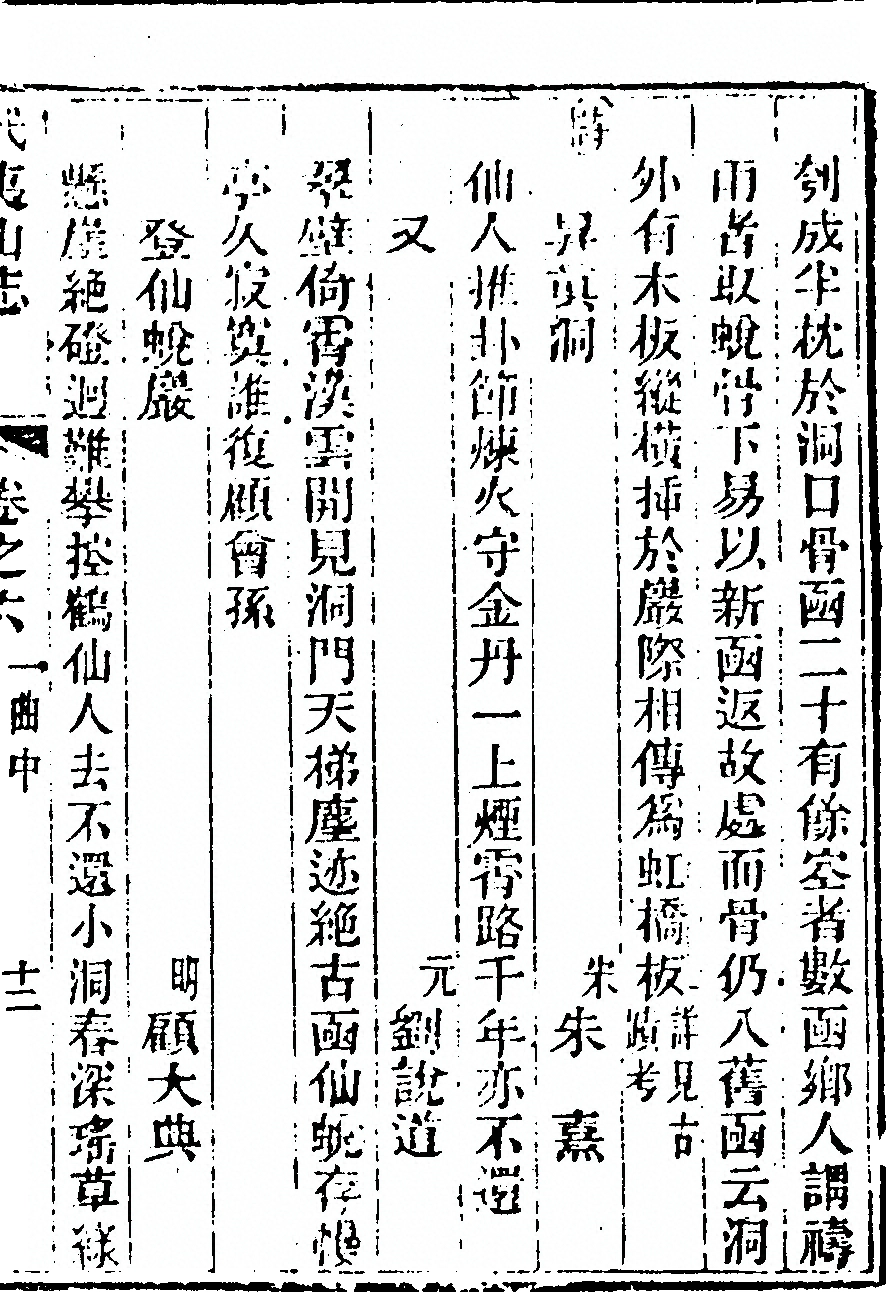 刳成半枕於洞口骨函二十有餘空者數函鄉人謂禱
雨者取蛻骨下易以新函返故處而骨仍入舊函云洞
外有木板縱橫插於巖際相傳爲虹橋板詳見古蹟考
詩
昇真洞 宋朱熹
仙人推卦節煉火守金丹一上煙霄路千年亦不還
又 元劉說道
翠壁倚霄漢雲開見洞門天梯塵迹絶古函仙蛻存幔
亭久寂寞誰復顧曾孫
登仙蛻巖 明顧大典
懸崖絶磴迴難攀控鶴仙人去不還小洞春深瑤草綠
武夷山志 卷之六 一曲中 十二